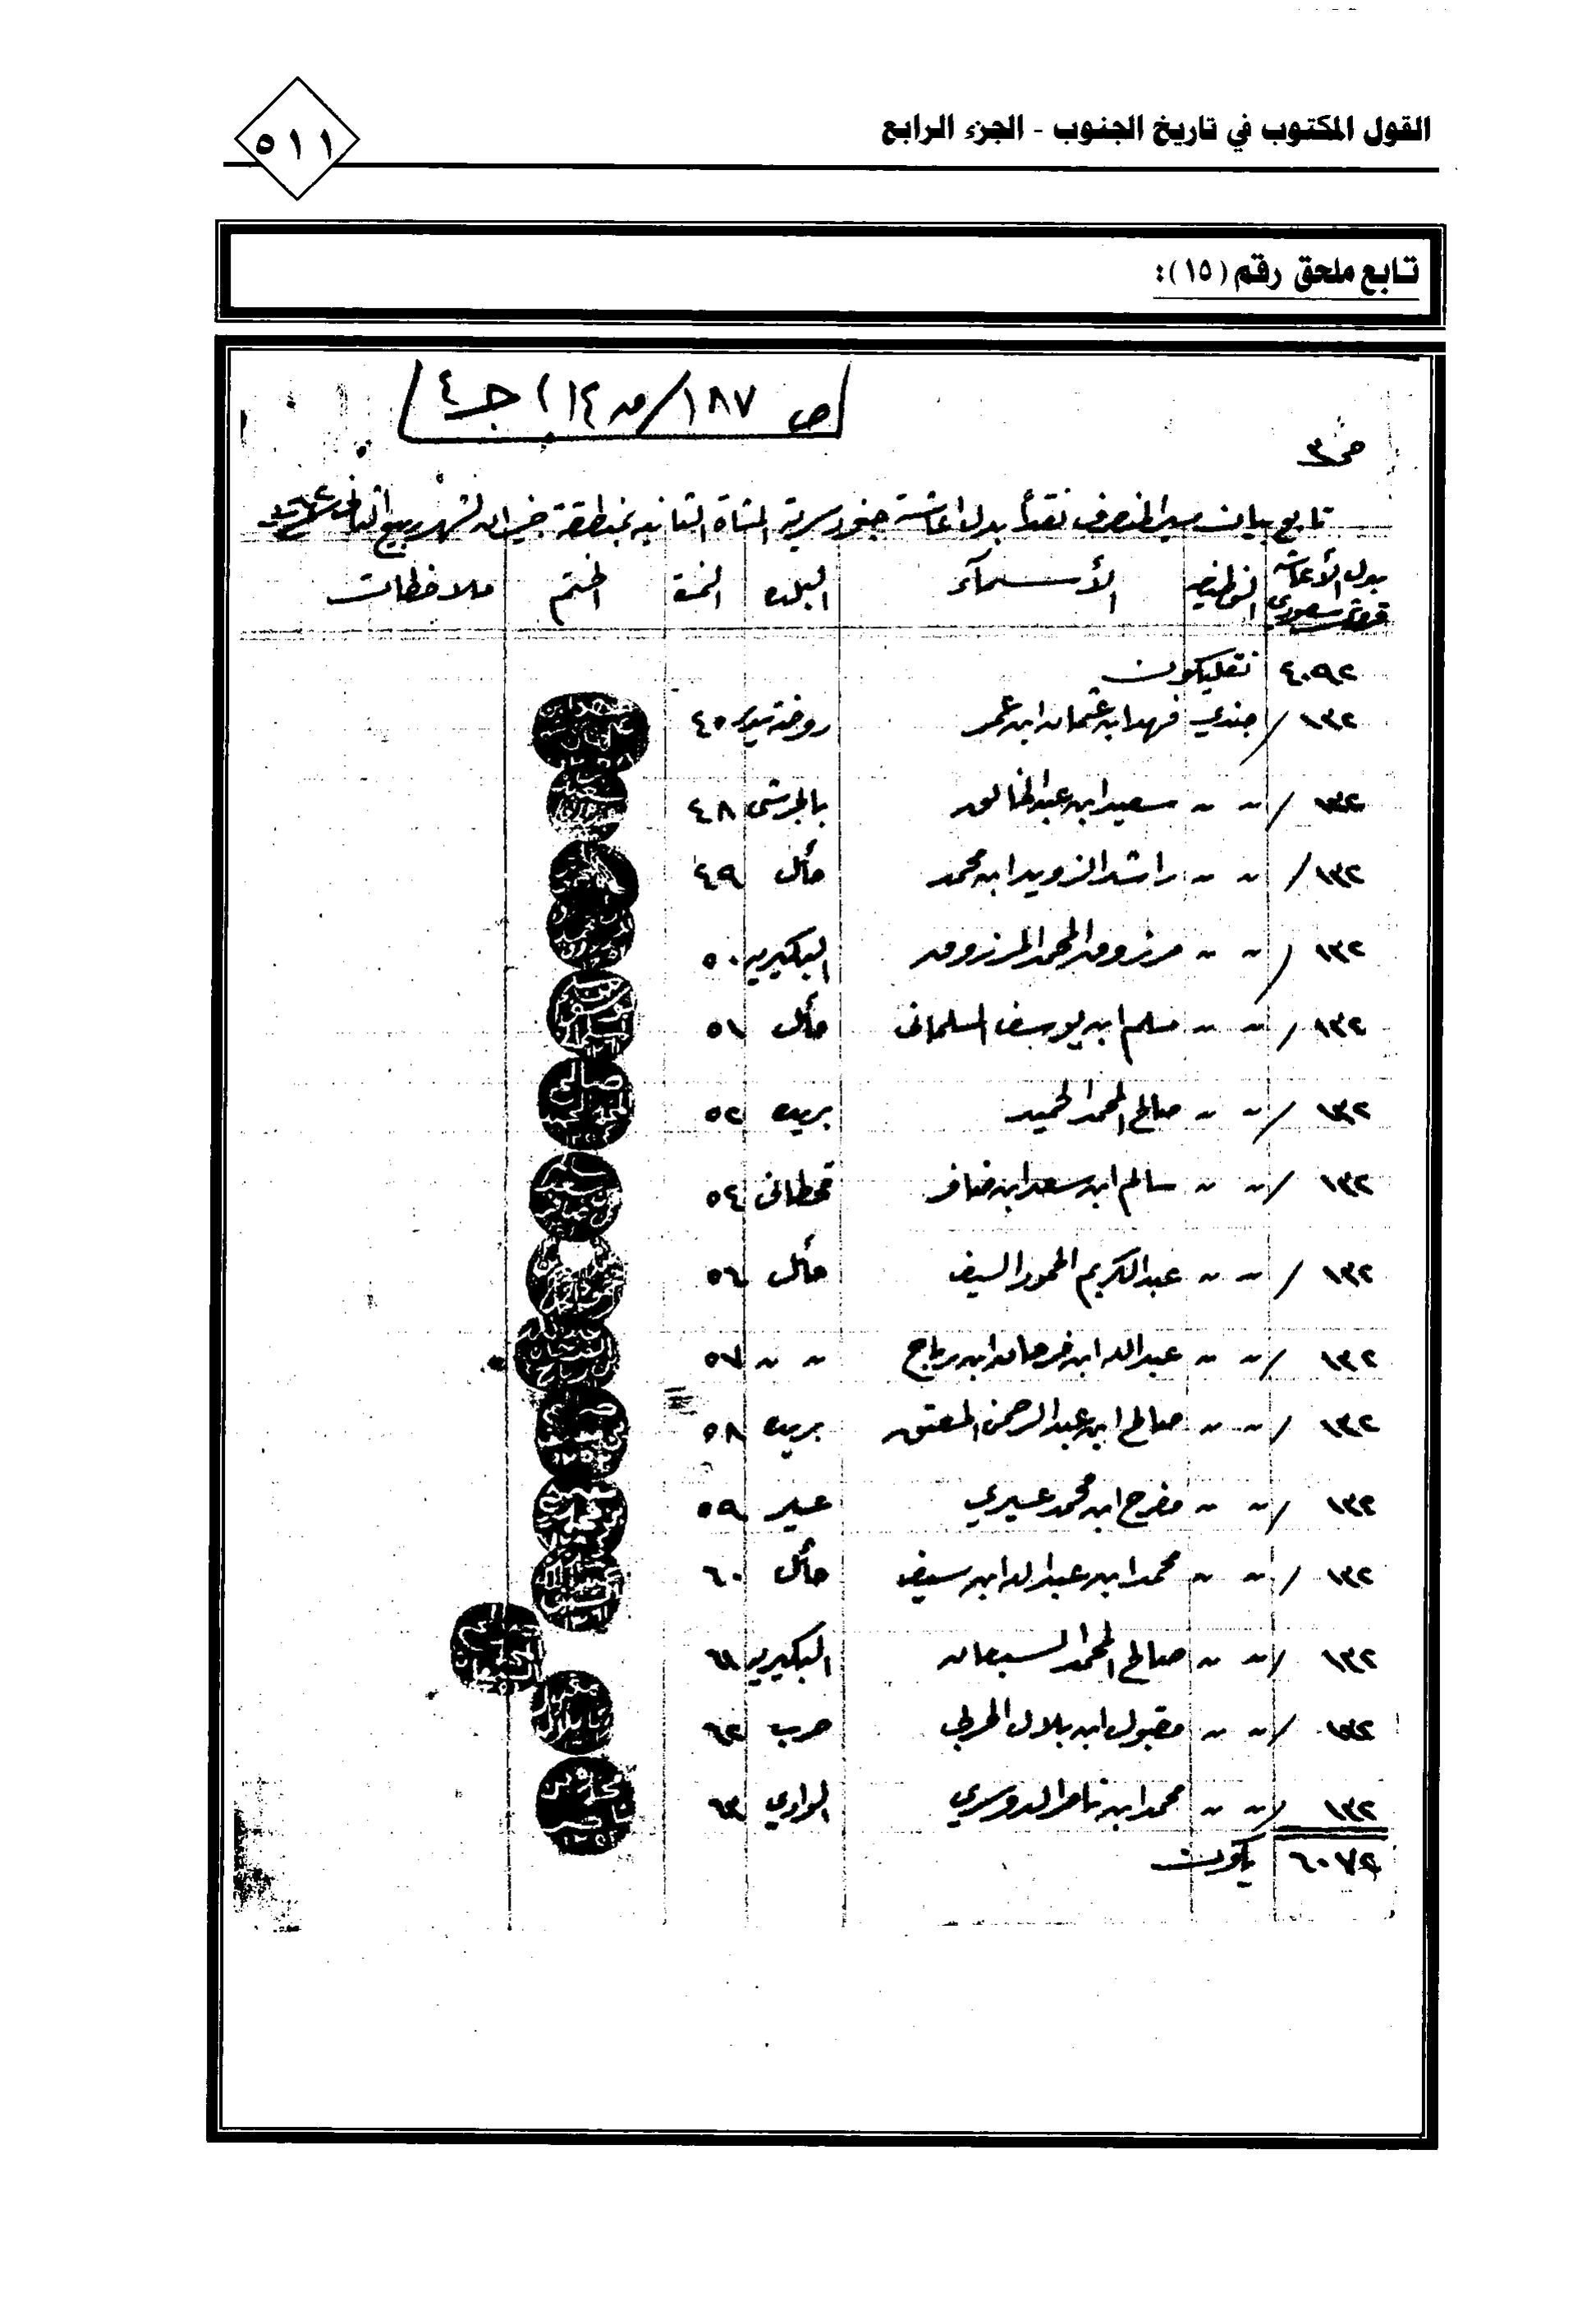 القول المكتوب في تاريخ الجنوب - الجزء الرابع
٥١١
تابع ملحق رقم (١٥):
ص ١٨٧/ م ١٤) جـ٤
ص٣
تابع بيان نقداً بدل اعاشة جنود سرية المشاة الثانية بمنطقة جيزان لشهر ربيع الثاني
بدل الأعاشه قروش سعودي الوظيفه الأسمآء البلده النمرة الختم ملاحظات
٤٠٩٢ نقليكون
١٣٢ / جندي فهد ابن عثمان ابن عمر روضة سدير ٤٥
١٣٢ / " " سعيد ابن عبدالخالق بالجرشى ٤٨
١٣٢ / " " راشد الزويد ابن محمد حائل ٤٩
١٣٢ / " " مرزوق المحمد المرزوق البكيريه ٥٠
١٣٢ / " " مسلم ابن يوسف المسلمانى حائل ٥١
١٣٢ / " " صالح المحمد الحميد بريده ٥٢
١٣٢ / " " سالم ابن سعد ابن ضافر قحطانى ٥٤
١٣٢ / " " عبدالكريم المحمود السيف حائل ٥٦
١٣٢ / " " عبدالله ابن فرحان ابن رباح " " ٥٧
١٣٢ / " " صالح ابن عبدالرحمن المعتق بريده ٥٨
١٣٢ / " " مفرح ابن محمد عسيري عسير ٥٩
١٣٢ / " " محمد ابن عبدالله ابن سيف حائل ٦٠
١٣٢ / " " صالح المحمد السبعان البكيريه ٦١
١٣٢ / " " مقبول ابن بلال الحربي حرب ٦٢
١٣٢ / " " محمد ابن ناصر الدوسري الوادي ٦٣
٦٠٧٢ يكون